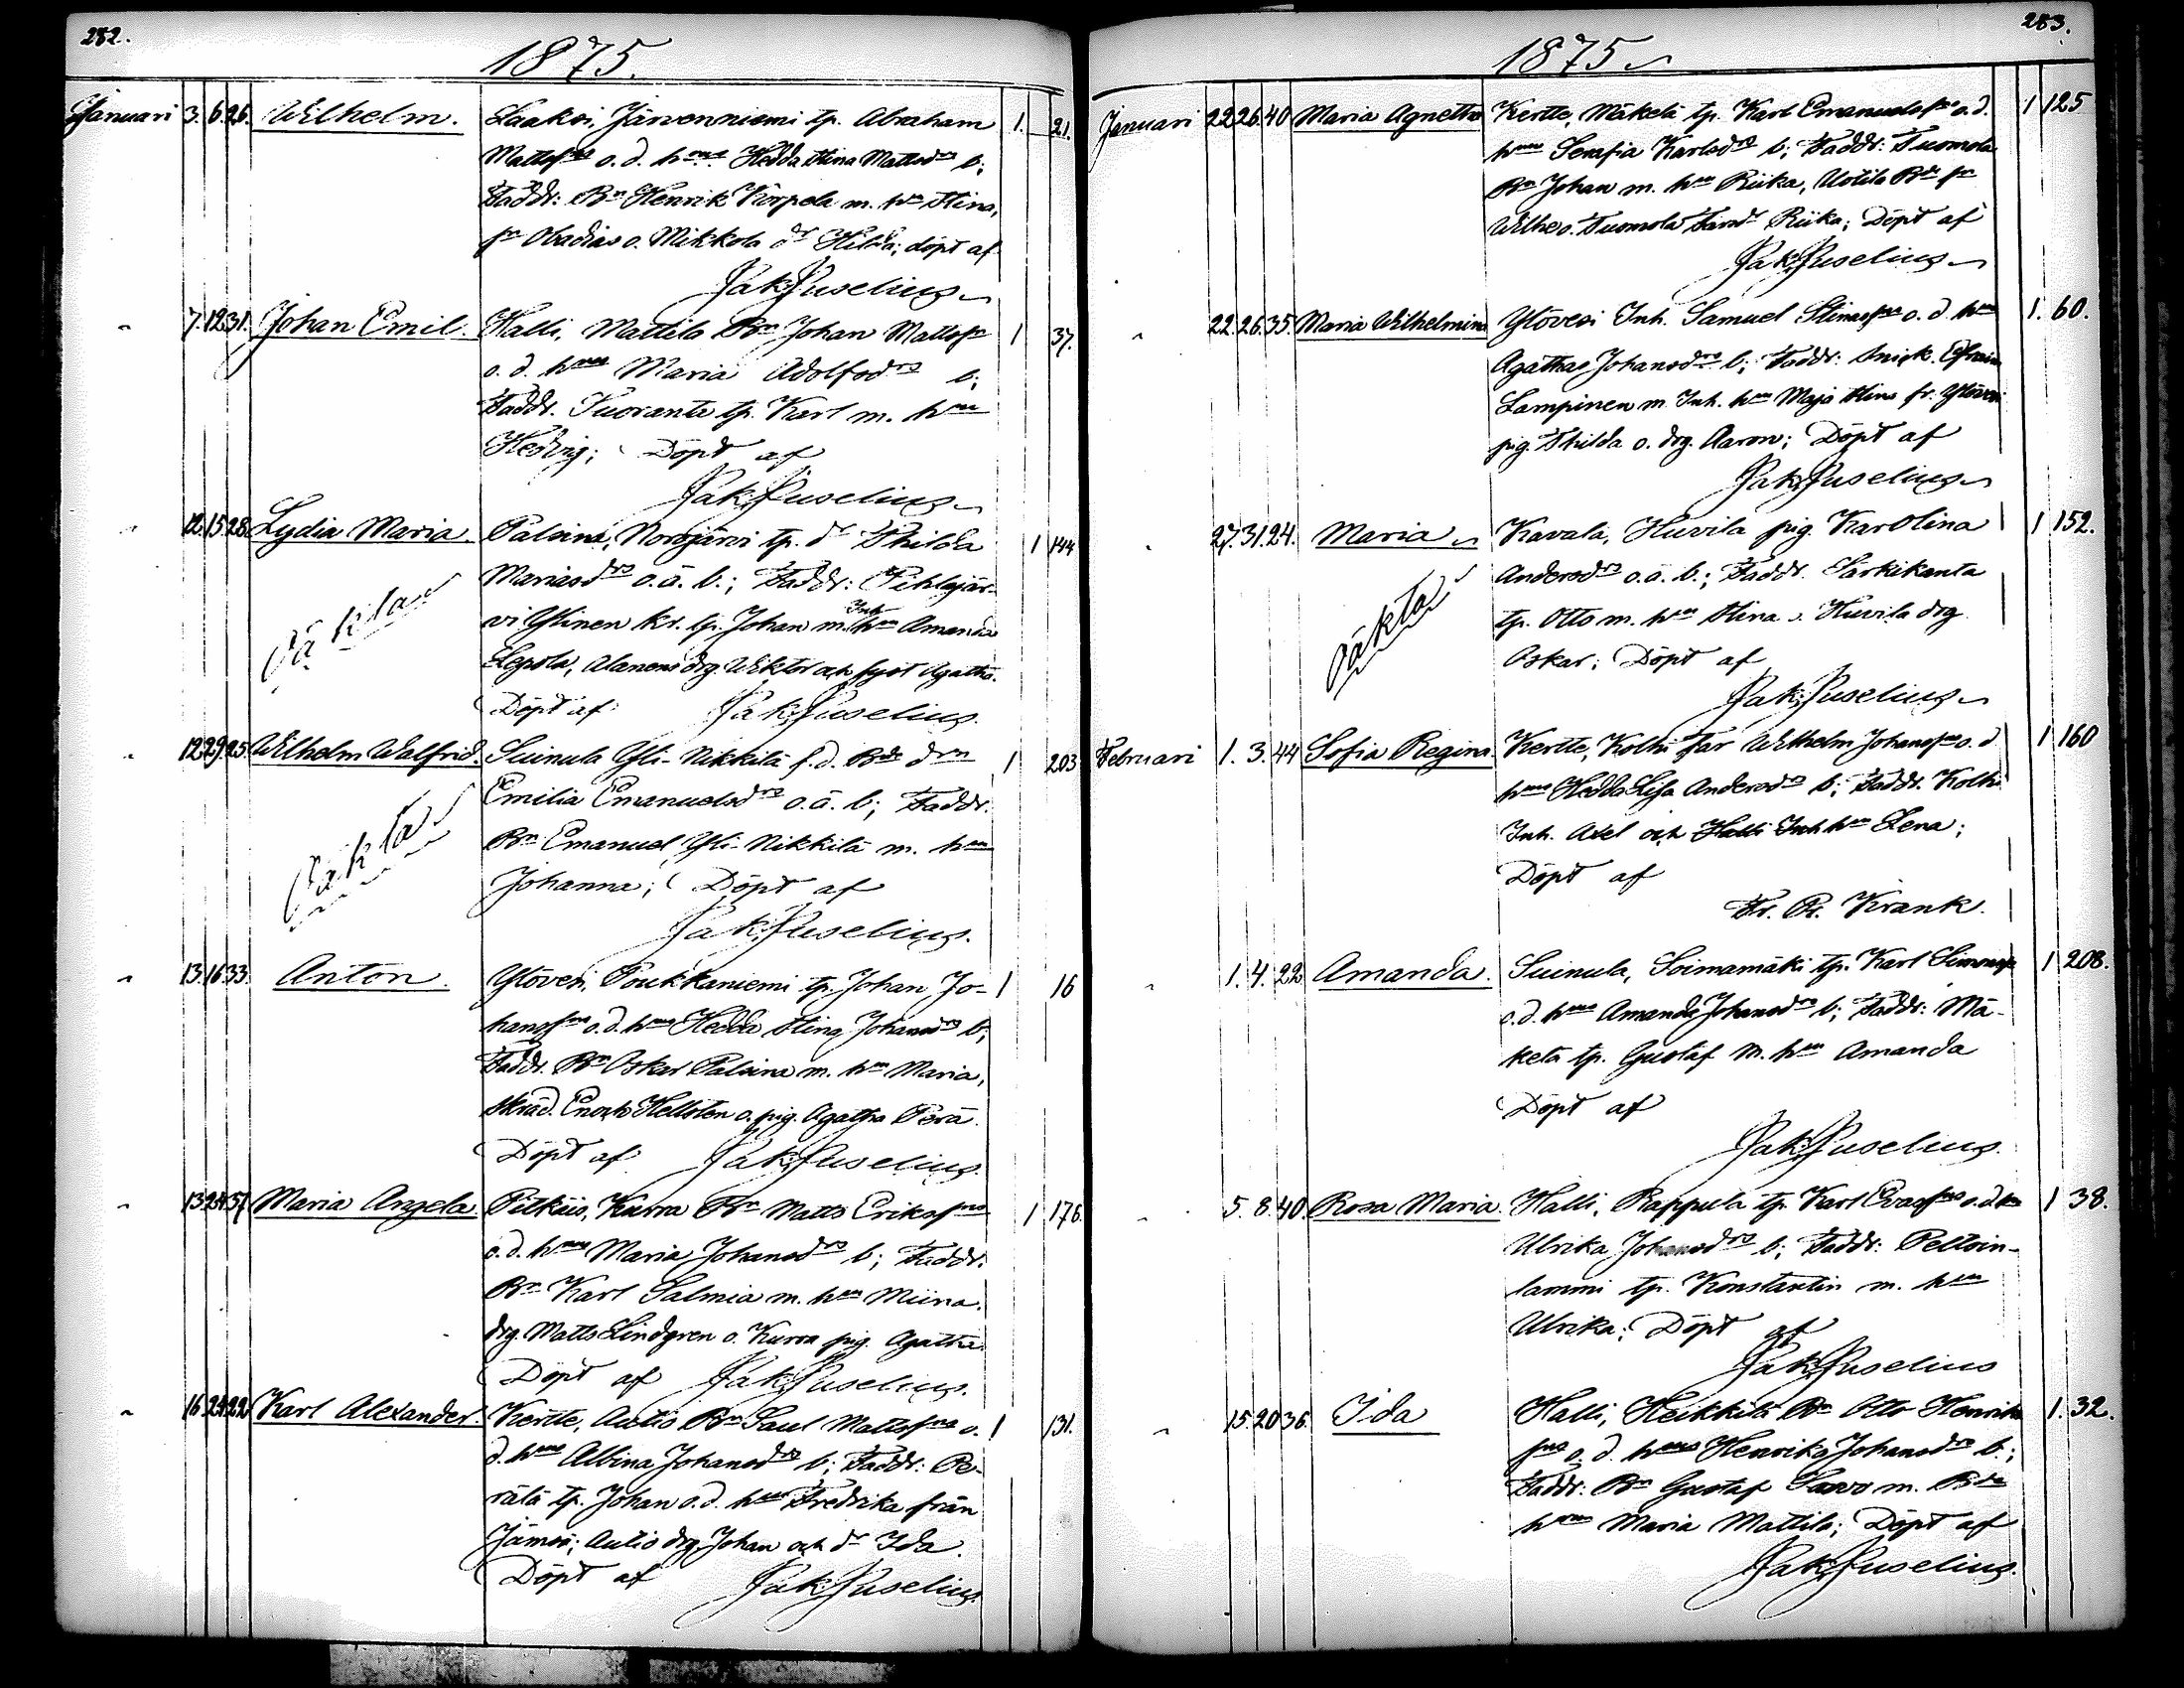 282.
1875.
Januari 3. 6. 26. Wilhelm. Laaksi, Järvenniemi tp. Abraham 1. 21.
Mattsns o. d. hns Hedda Stina Mattsdrs b;
Faddr: Bn Henrik Korpela m. hn Stina,
sn Obadias o. Mikkola dr Hilda; döpt af
Jak. Juselius
" 7. 12. 31. Johan Emil. Halli, Mattila Bn Johan Mattssn 1 37.
o. d. hns Maria Adolfsdrs b;
Faddr. Tuoranta tp. Karl m. hn
Hedvig; Döpt af
Jak. Juselius
" 12. 15. 28. Lydia Maria. Palsina, Norojärvi tp. dr Thilda 1 144
Mariasdrs o.ä. b.; Faddr: Pihlajär-
vi Ylinen kr. tp. Johan m. Inh. hn Amanda
Lepola, Alanens drg. Wiktor och syst Agatha.
Döpt af Jak. Juselius.
Oäkta
" 12. 29. 25. Wilhelm Walfrid. Suinula Yli-Nikkilä f.d. Bde drn 1 203
Emilia Emanuelsdrs o.ä. b; Faddr.
Bn Emanuel Yli-Nikkilä m. hn
Johanna; Döpt af
Jak. Juselius.
Oäkta
" 13. 16. 33. Anton. Ylövesi, Poukkaniemi tp. Johan Jo- 1 16
hanssns o. d. hns Hedda Stina Johansdrs b;
Faddr. Bn Oskar Palsina m. hn Maria,
Skräd. Enoch Hellsten o. pig. Agatha Perä.
Döpt af Jak. Juselius.
" 13. 24. 37. Maria Angela. Pitkäis, Kurra Bn Matts Erikssns 1 176.
o. d. hns Maria Johansdrs b; Faddr.
Bn Karl Salmia m. hn Miina.
drg. Matts Lindgren o. Kurra pig. Agatha.
Döpt af Jak. Juselius.
" 16. 24. 22. Karl Alexander. Kertte, Autio Bn Saul Mattssns o. 1 131.
d. hns Albina Johansdrs b; Faddr: Pe-
rälä tp. Johan o. d. hn Fredrika från
Jämsä; Autio drg. Johan och dr Ida.
Döpt af Jak. Juselius.
283.
1875
Januari 22. 26. 40 Maria Agnetta Kertte, Mäkelä tp. Karl Emanuelssns o. d. 1 125
hns Serafia Karlsdrs b; Faddr: Tuomola
Bn Johan m. hn Riika, Uotila Bde sn
Wilh. o. Tuomola Riika; Döpt af
Jak. Juselius
" 22. 26. 35. Maria Wilhelmina Ylövesi Inh. Samuel Stinassns o. d. hns 1. 60.
Agathas Johansdrs b; Faddr: Snick. Efraim
Lampinen m. Inh. hn Maja Stina fr. Ylövesi
pig. Thilda o. drg. Aaron; Döpt af
Jak. Juselius
" 27. 31. 24. Maria Kavala, Huvila pig. Karolina 1 152.
Andersdrs o.ä. b.; Faddr. Särkikanta
tp. Otto m. hn Stina o. Huvila drg.
Oskar; Döpt af
Jak. Juselius
Oäkta
Februari 1. 3. 44 Sofia Regina. Kertte, Kolhi Wilhelm Johanssns o. d 1 160
hns Hedda Lisa Andersdrs b; Faddr. Kolhi
Inh. Axel och Halli Inh. hn Lena;
Döpt af
Fr. Br. Krank.
" 1. 4. 22 Amanda. Suinula, Soimamäki tp. Karl Simonssns 1 208.
o. d. hns Amanda Johansdrs b; Faddr: Mä-
kelä tp. Gustaf m. hn Amanda
Döpt af
Jak. Juselius.
" 5. 8. 40. Rosa Maria. Halli, Rappula tp. Karl Evassns o. d. hns 1 38.
Ulrika Johansdrs b; Faddr: Peltoin-
lammi tp. Konstantin m. hn
Ulrika; Döpt af
Jak. Juselius
" 15. 20. 36. Ida Halli, Heikkilä Bn Otto Henriks 1. 32.
sns o. d. hns Henrika Johansdrs b.;
Faddr: Bn Gustaf Savo m. Bde
hn Maria Mattila; Döpt af
Jak. Juselius.